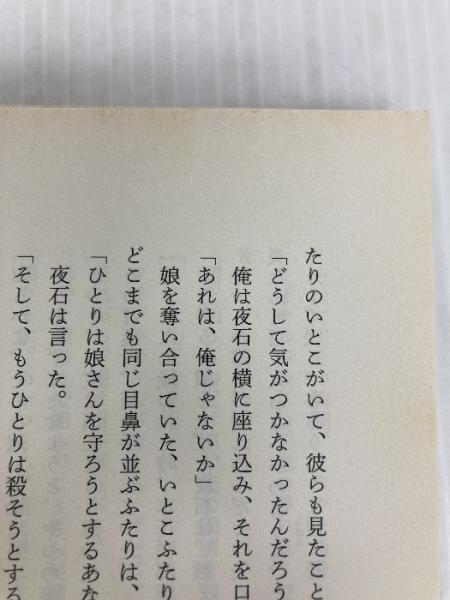 たりのいとこがいて、彼らも見たこと
「どうして気がつかなかったんだろう
俺は夜石の横に座り込み、それを口
「あれは、俺じゃないか」
娘を奪い合っていた、いとこふたり
どこまでも同じ目鼻が並ぶふたりは、
「ひとりは娘さんを守ろうとするあな
夜石は言った。
「そして、もうひとりは殺そうとする